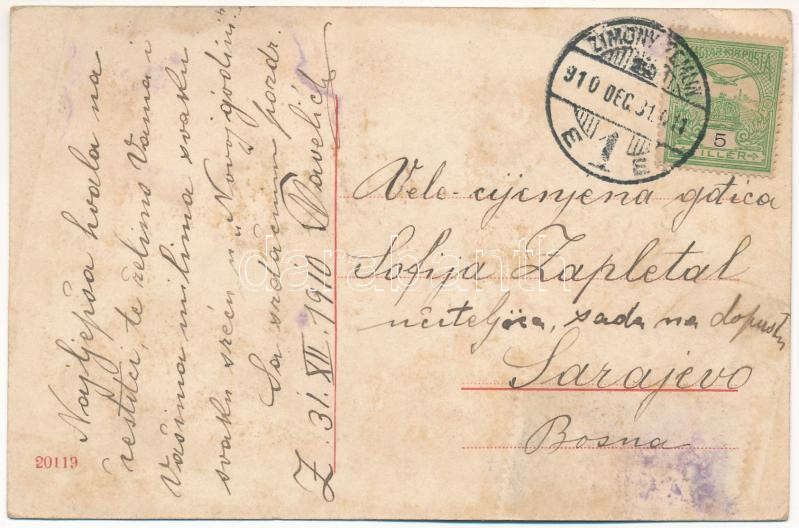 Najljepša hvala na
čestitci, te želimo Vama i
Vašima milima svaku
svaku sreću u „Novoj godini“
Sa srdačnim pozdr.
Z. 31. XII. 1910 Pavelić
20119
ZIMONY ZEMLIN
910 DEC. 31.
E 1
MAGYAR KIR. POSTA
5
FILLÉR
Vele-cijenjena gđica
Sofija Zapletal
učiteljica, sada na dopustu
Sarajevo
Bosna
darabanth.com